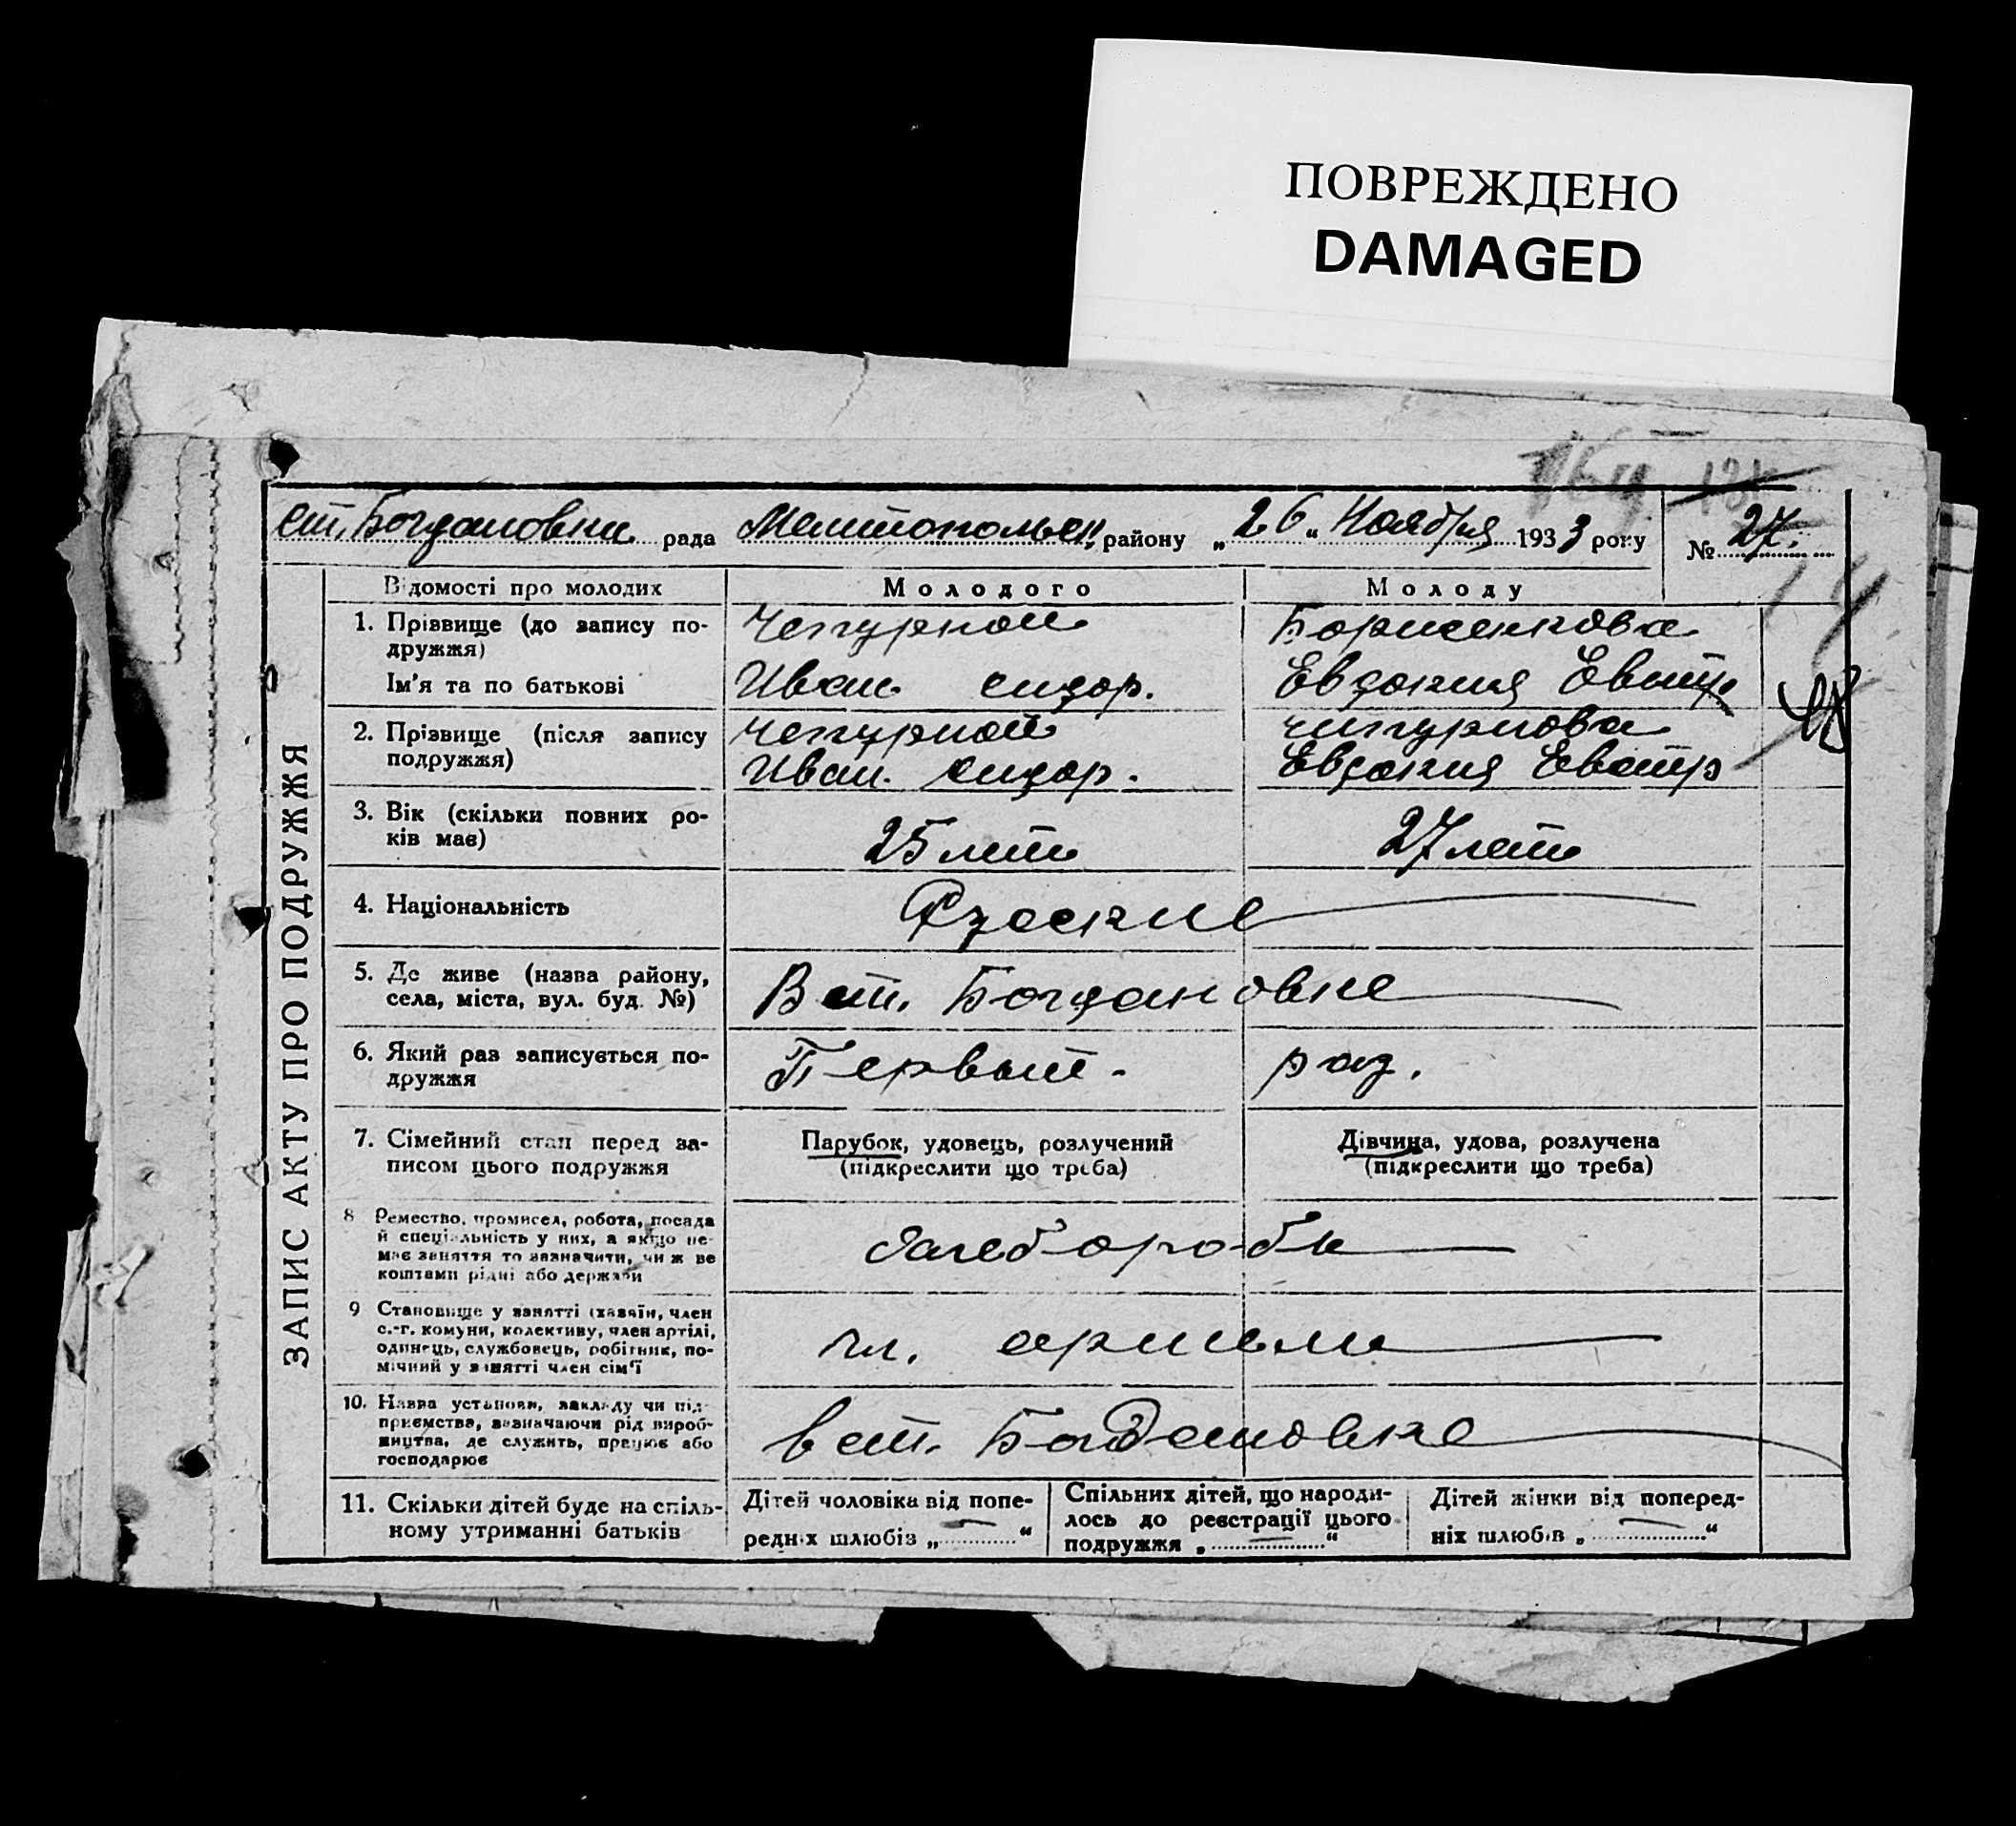 ПОВРЕЖДЕНО
DAMAGED
ст. Богдановки рада Мелитопольск. району „26“ Ноября 1933 року № 27.
ЗАПИС АКТУ ПРО ПОДРУЖЖЯ
Відомості про молодих Молодого Молоду
1. Прізвище (до запису по- Чепурной Борисенкова
дружжя)
Ім'я та по батькові Иван сидор. Евдокия
2. Прізвище (після запису чепурной чипурнова
подружжя) Иван. сидор. Евдокия
3. Вік (скільки повних ро-
ків має) 25 лет 27 лет
4. Національність Руские
5. Де живе (назва району, В ст. Богдановке
села, міста, вул. буд. №)
6. Який раз записується по- Первый. раз.
дружжя
7. Сімейний стан перед за- Парубок, удовець, розлучений Дівчина, удова, розлучена
писом цього подружжя (підкреслити що треба) (підкреслити що треба)
8 Ремество, промисел, робота, посада
й спеціальність у них, а якщо не- хлеборобы
має заняття то зазначити, чи ж ве
коштами рідні або держави
9 Становище у занятті (хазяїн, член
с.-г. комуни, колективу, член артілі, чл. артели
одинець, службовець, робітник, по-
мічний у занятті член сім'ї
10. Назва установи, закладу чи під-
приємства, зазначаючи рід вироб- в ст. Богдановке
ництва, де служить, працює або
господарює
11. Скільки дітей буде на спіль- Дітей чоловіка від попе- Спільних дітей, що народи- Дітей жінки від поперед-
ному утриманні батьків редніх шлюбів „—“ лось до реєстрації цього ніх шлюбів „—“
подружжя „—“